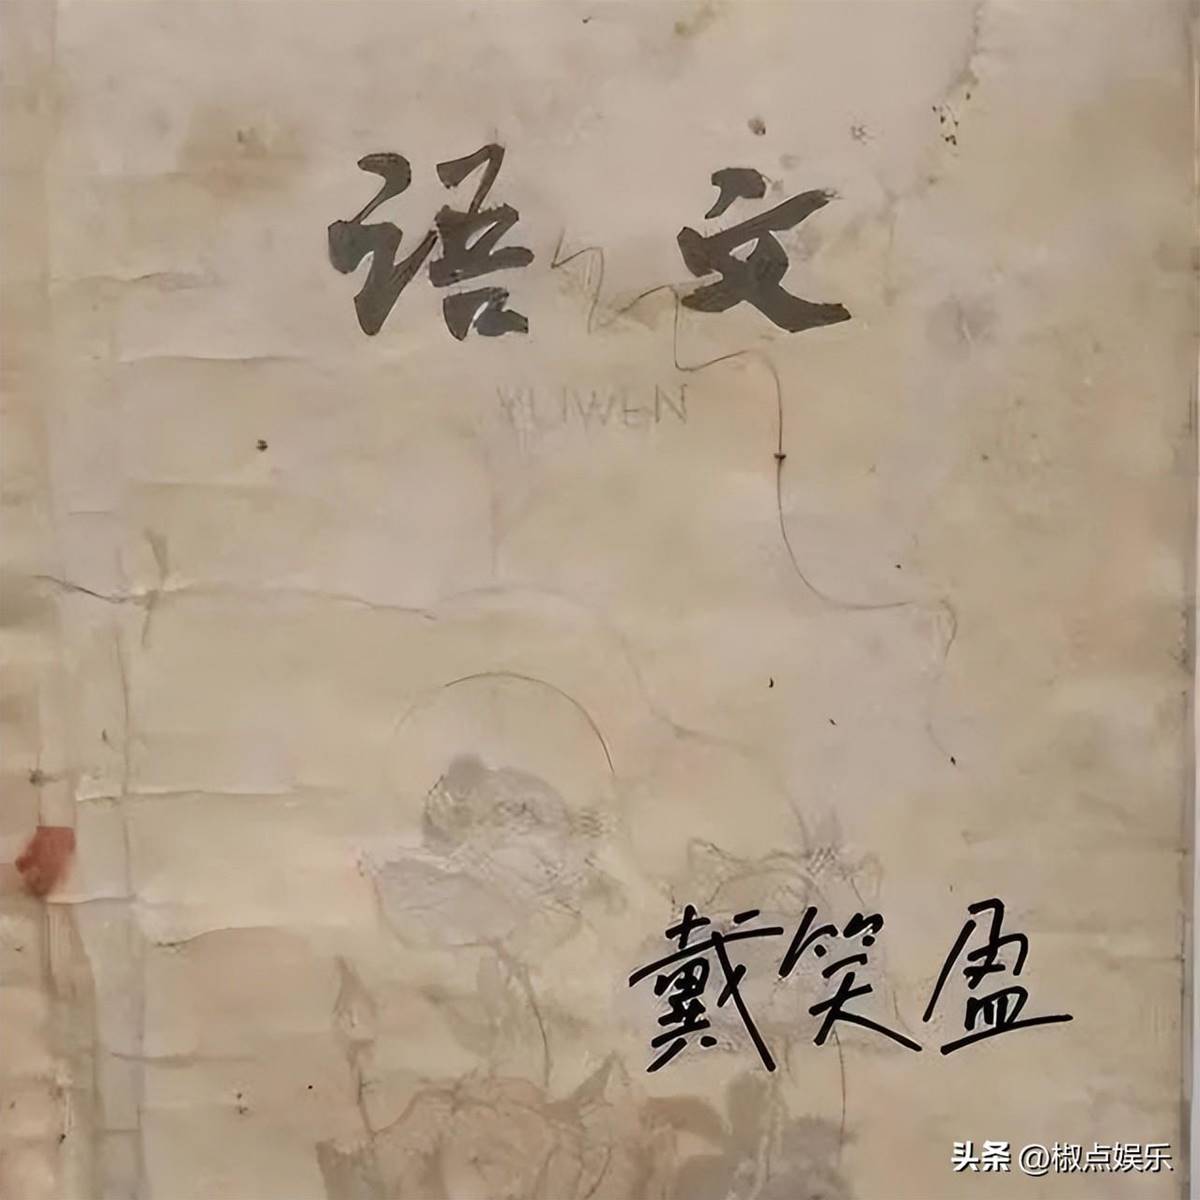 语文
YUWEN
戴笑盈
头条 @椒点娱乐